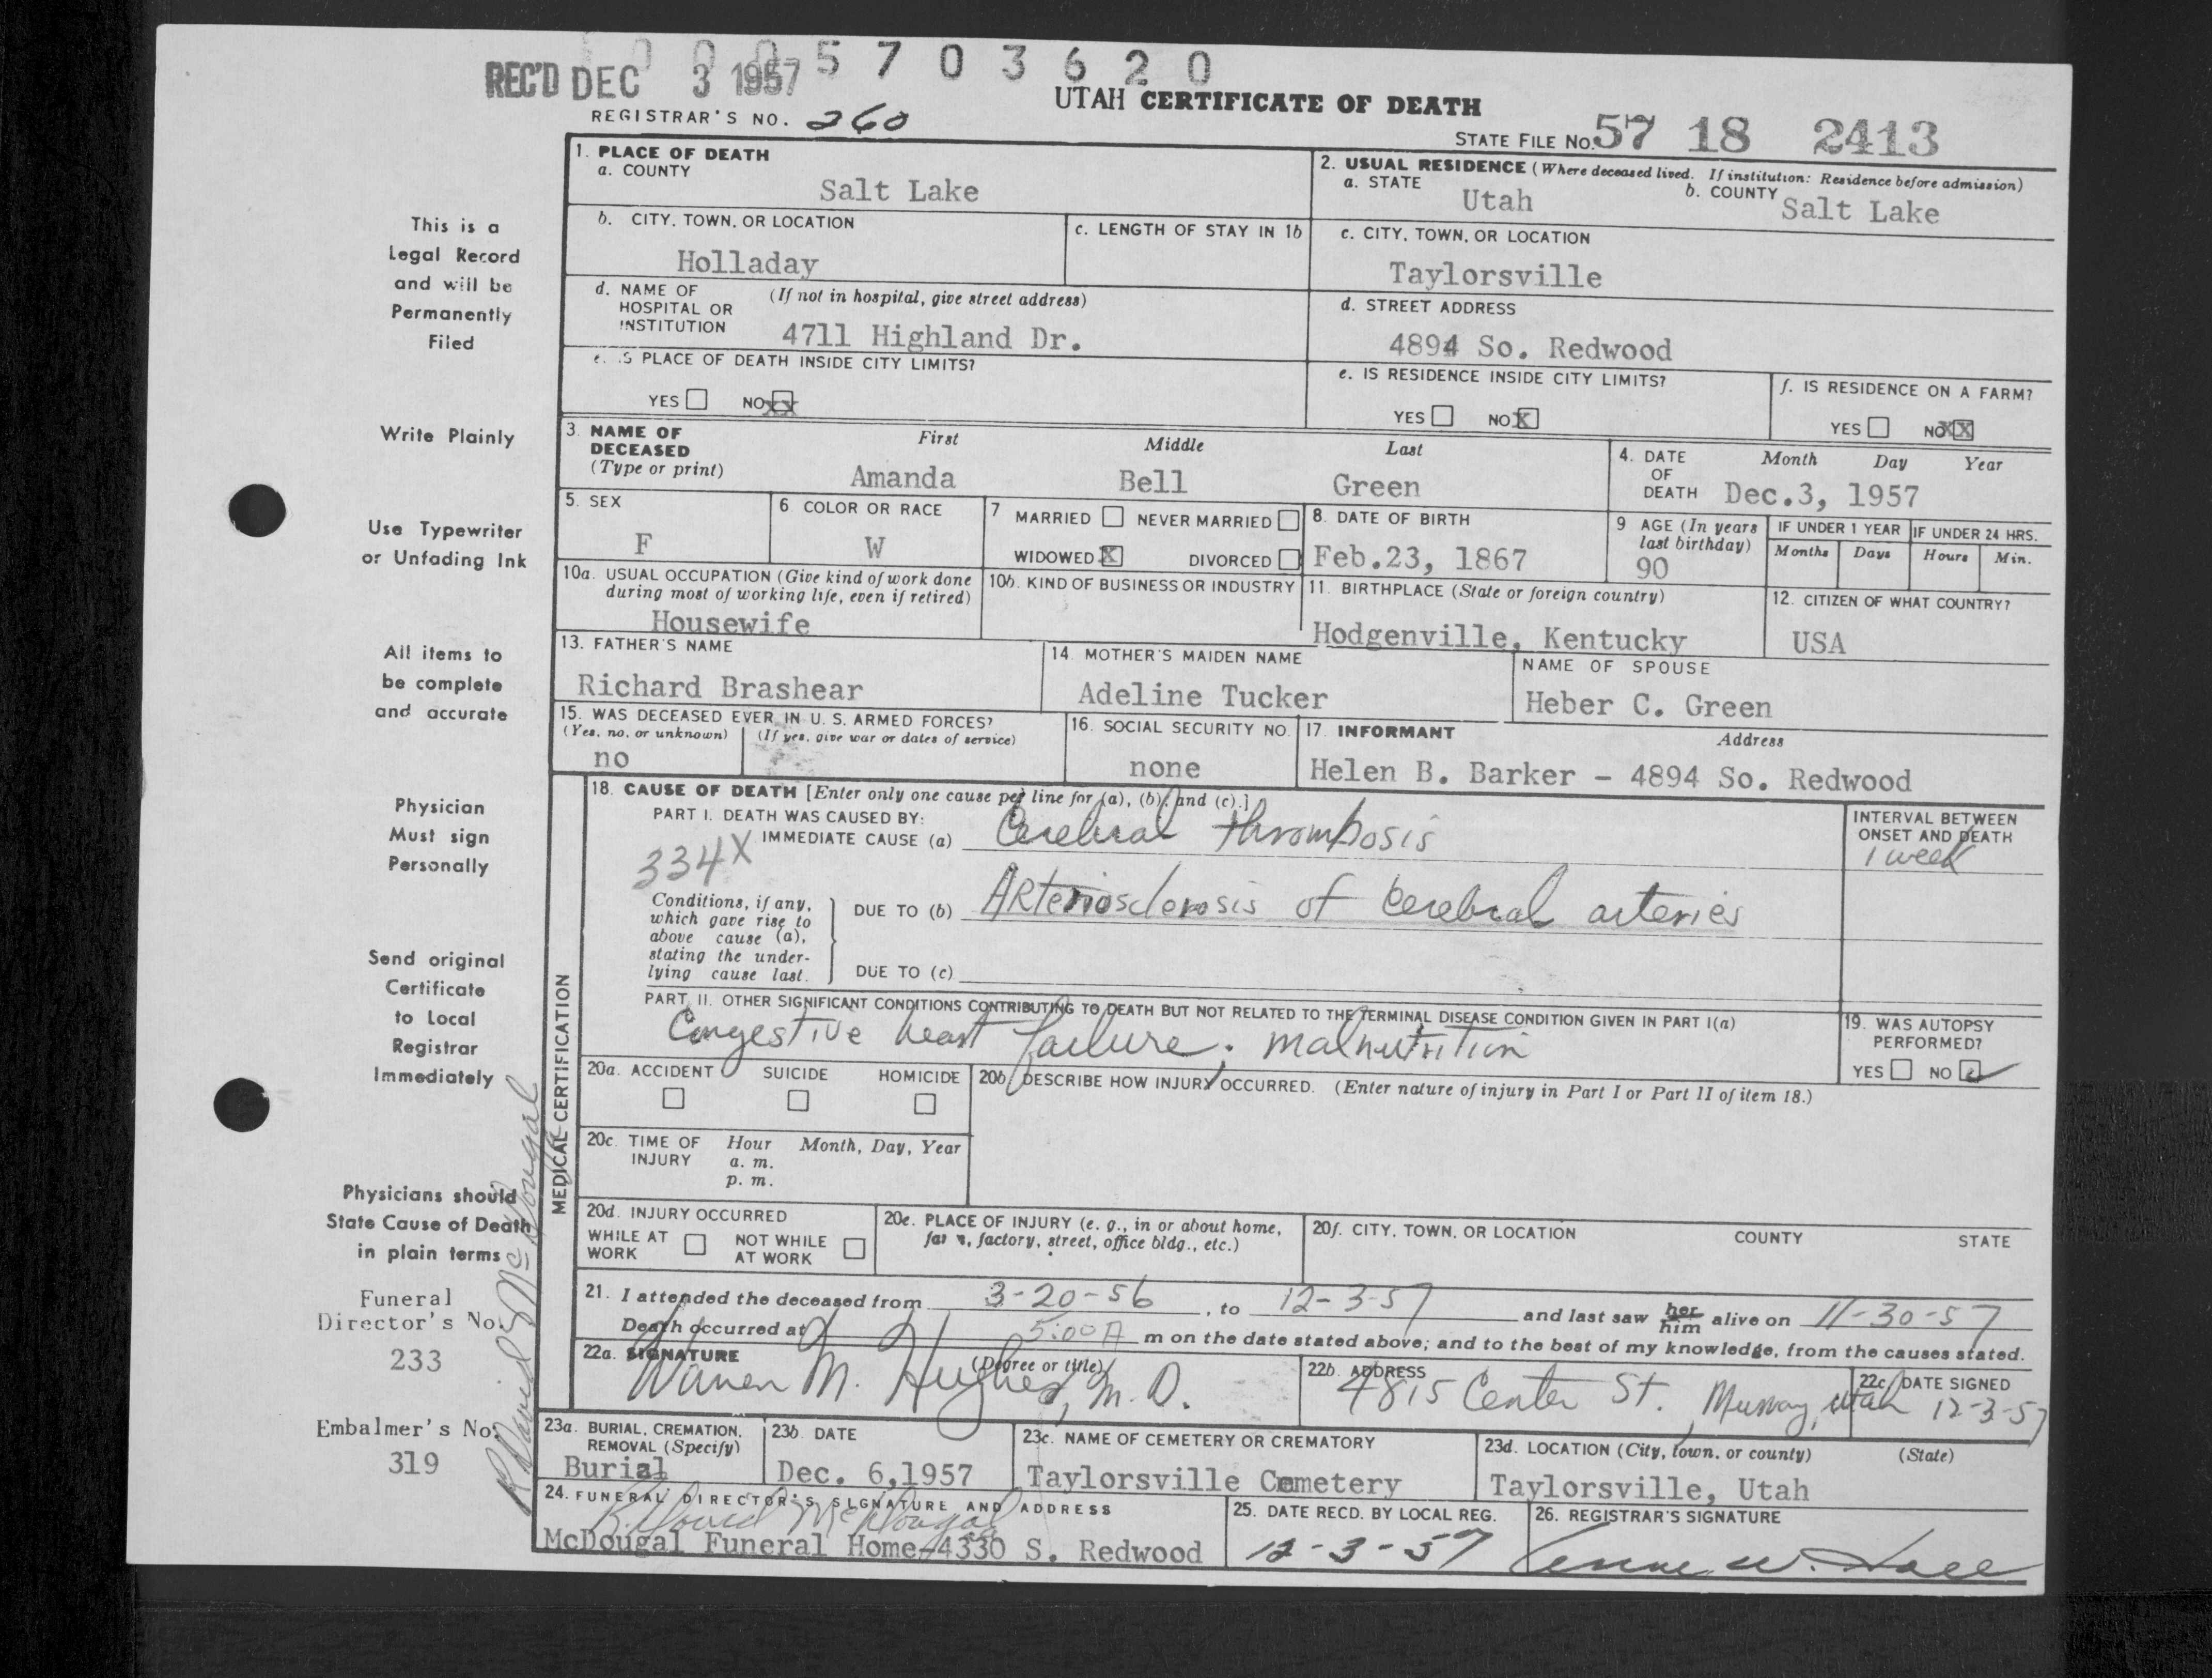 0 0 0 5 7 0 3 6 2 0
REC'D DEC 3 1957
UTAH CERTIFICATE OF DEATH
REGISTRAR'S NO. 260
STATE FILE NO. 57 18 2413
This is a
Legal Record
and will be
Permanently
Filed
Write Plainly
Use Typewriter
or Unfading Ink
All items to
be complete
and accurate
Physician
Must sign
Personally
Send original
Certificate
to Local
Registrar
Immediately
Physicians should
State Cause of Death
in plain terms
Funeral
Director's No.
233
Embalmer's No.
319
R David McDougal
1. PLACE OF DEATH
a. COUNTY
Salt Lake
2. USUAL RESIDENCE (Where deceased lived. If institution: Residence before admission)
a. STATE Utah b. COUNTY Salt Lake
b. CITY, TOWN, OR LOCATION
Holladay
c. LENGTH OF STAY IN 1b
c. CITY, TOWN, OR LOCATION
Taylorsville
d. NAME OF HOSPITAL OR INSTITUTION (If not in hospital, give street address)
4711 Highland Dr.
d. STREET ADDRESS
4894 So. Redwood
e. IS PLACE OF DEATH INSIDE CITY LIMITS?
YES NO XX
e. IS RESIDENCE INSIDE CITY LIMITS?
YES NO X
f. IS RESIDENCE ON A FARM?
YES NO XX
3. NAME OF DECEASED (Type or print)
First Middle Last
Amanda Bell Green
4. DATE OF DEATH Month Day Year
Dec.3, 1957
5. SEX
F
6. COLOR OR RACE
W
7 MARRIED NEVER MARRIED
WIDOWED X DIVORCED
8. DATE OF BIRTH
Feb.23, 1867
9 AGE (In years last birthday)
90
IF UNDER 1 YEAR IF UNDER 24 HRS.
Months Days Hours Min.
10a. USUAL OCCUPATION (Give kind of work done during most of working life, even if retired)
Housewife
10b. KIND OF BUSINESS OR INDUSTRY
11. BIRTHPLACE (State or foreign country)
Hodgenville, Kentucky
12. CITIZEN OF WHAT COUNTRY?
USA
13. FATHER'S NAME
Richard Brashear
14. MOTHER'S MAIDEN NAME
Adeline Tucker
NAME OF SPOUSE
Heber C. Green
15. WAS DECEASED EVER IN U. S. ARMED FORCES?
(Yes, no, or unknown) (If yes, give war or dates of service)
no
16. SOCIAL SECURITY NO.
none
17. INFORMANT Address
Helen B. Barker - 4894 So. Redwood
MEDICAL CERTIFICATION
18. CAUSE OF DEATH [Enter only one cause per line for (a), (b), and (c).]
PART I. DEATH WAS CAUSED BY:
IMMEDIATE CAUSE (a) Cerebral thrombosis
INTERVAL BETWEEN ONSET AND DEATH
1 week
334X
Conditions, if any, which gave rise to above cause (a), stating the underlying cause last.
DUE TO (b) Arteriosclerosis of cerebral arteries
DUE TO (c)
PART II. OTHER SIGNIFICANT CONDITIONS CONTRIBUTING TO DEATH BUT NOT RELATED TO THE TERMINAL DISEASE CONDITION GIVEN IN PART I(a)
Congestive heart failure; malnutrition
19. WAS AUTOPSY PERFORMED?
YES NO
20a. ACCIDENT SUICIDE HOMICIDE
20b. DESCRIBE HOW INJURY OCCURRED. (Enter nature of injury in Part I or Part II of item 18.)
20c. TIME OF INJURY Hour Month, Day, Year
a. m.
p. m.
20d. INJURY OCCURRED
WHILE AT WORK NOT WHILE AT WORK
20e. PLACE OF INJURY (e. g., in or about home, farm, factory, street, office bldg., etc.)
20f. CITY, TOWN, OR LOCATION COUNTY STATE
21. I attended the deceased from 3-20-56, to 12-3-57 and last saw her him alive on 11-30-57
Death occurred at 5:00 A m on the date stated above; and to the best of my knowledge, from the causes stated.
22a. SIGNATURE (Degree or title)
Warren M. Hughes, M. D.
22b. ADDRESS
4815 Center St. Murray, Utah
22c. DATE SIGNED
12-3-57
23a. BURIAL, CREMATION, REMOVAL (Specify)
Burial
23b. DATE
Dec. 6,1957
23c. NAME OF CEMETERY OR CREMATORY
Taylorsville Cemetery
23d. LOCATION (City, town, or county) (State)
Taylorsville, Utah
24. FUNERAL DIRECTOR'S SIGNATURE AND ADDRESS
R. David McDougal
McDougal Funeral Home-4330 S. Redwood
25. DATE RECD. BY LOCAL REG.
12-3-57
26. REGISTRAR'S SIGNATURE